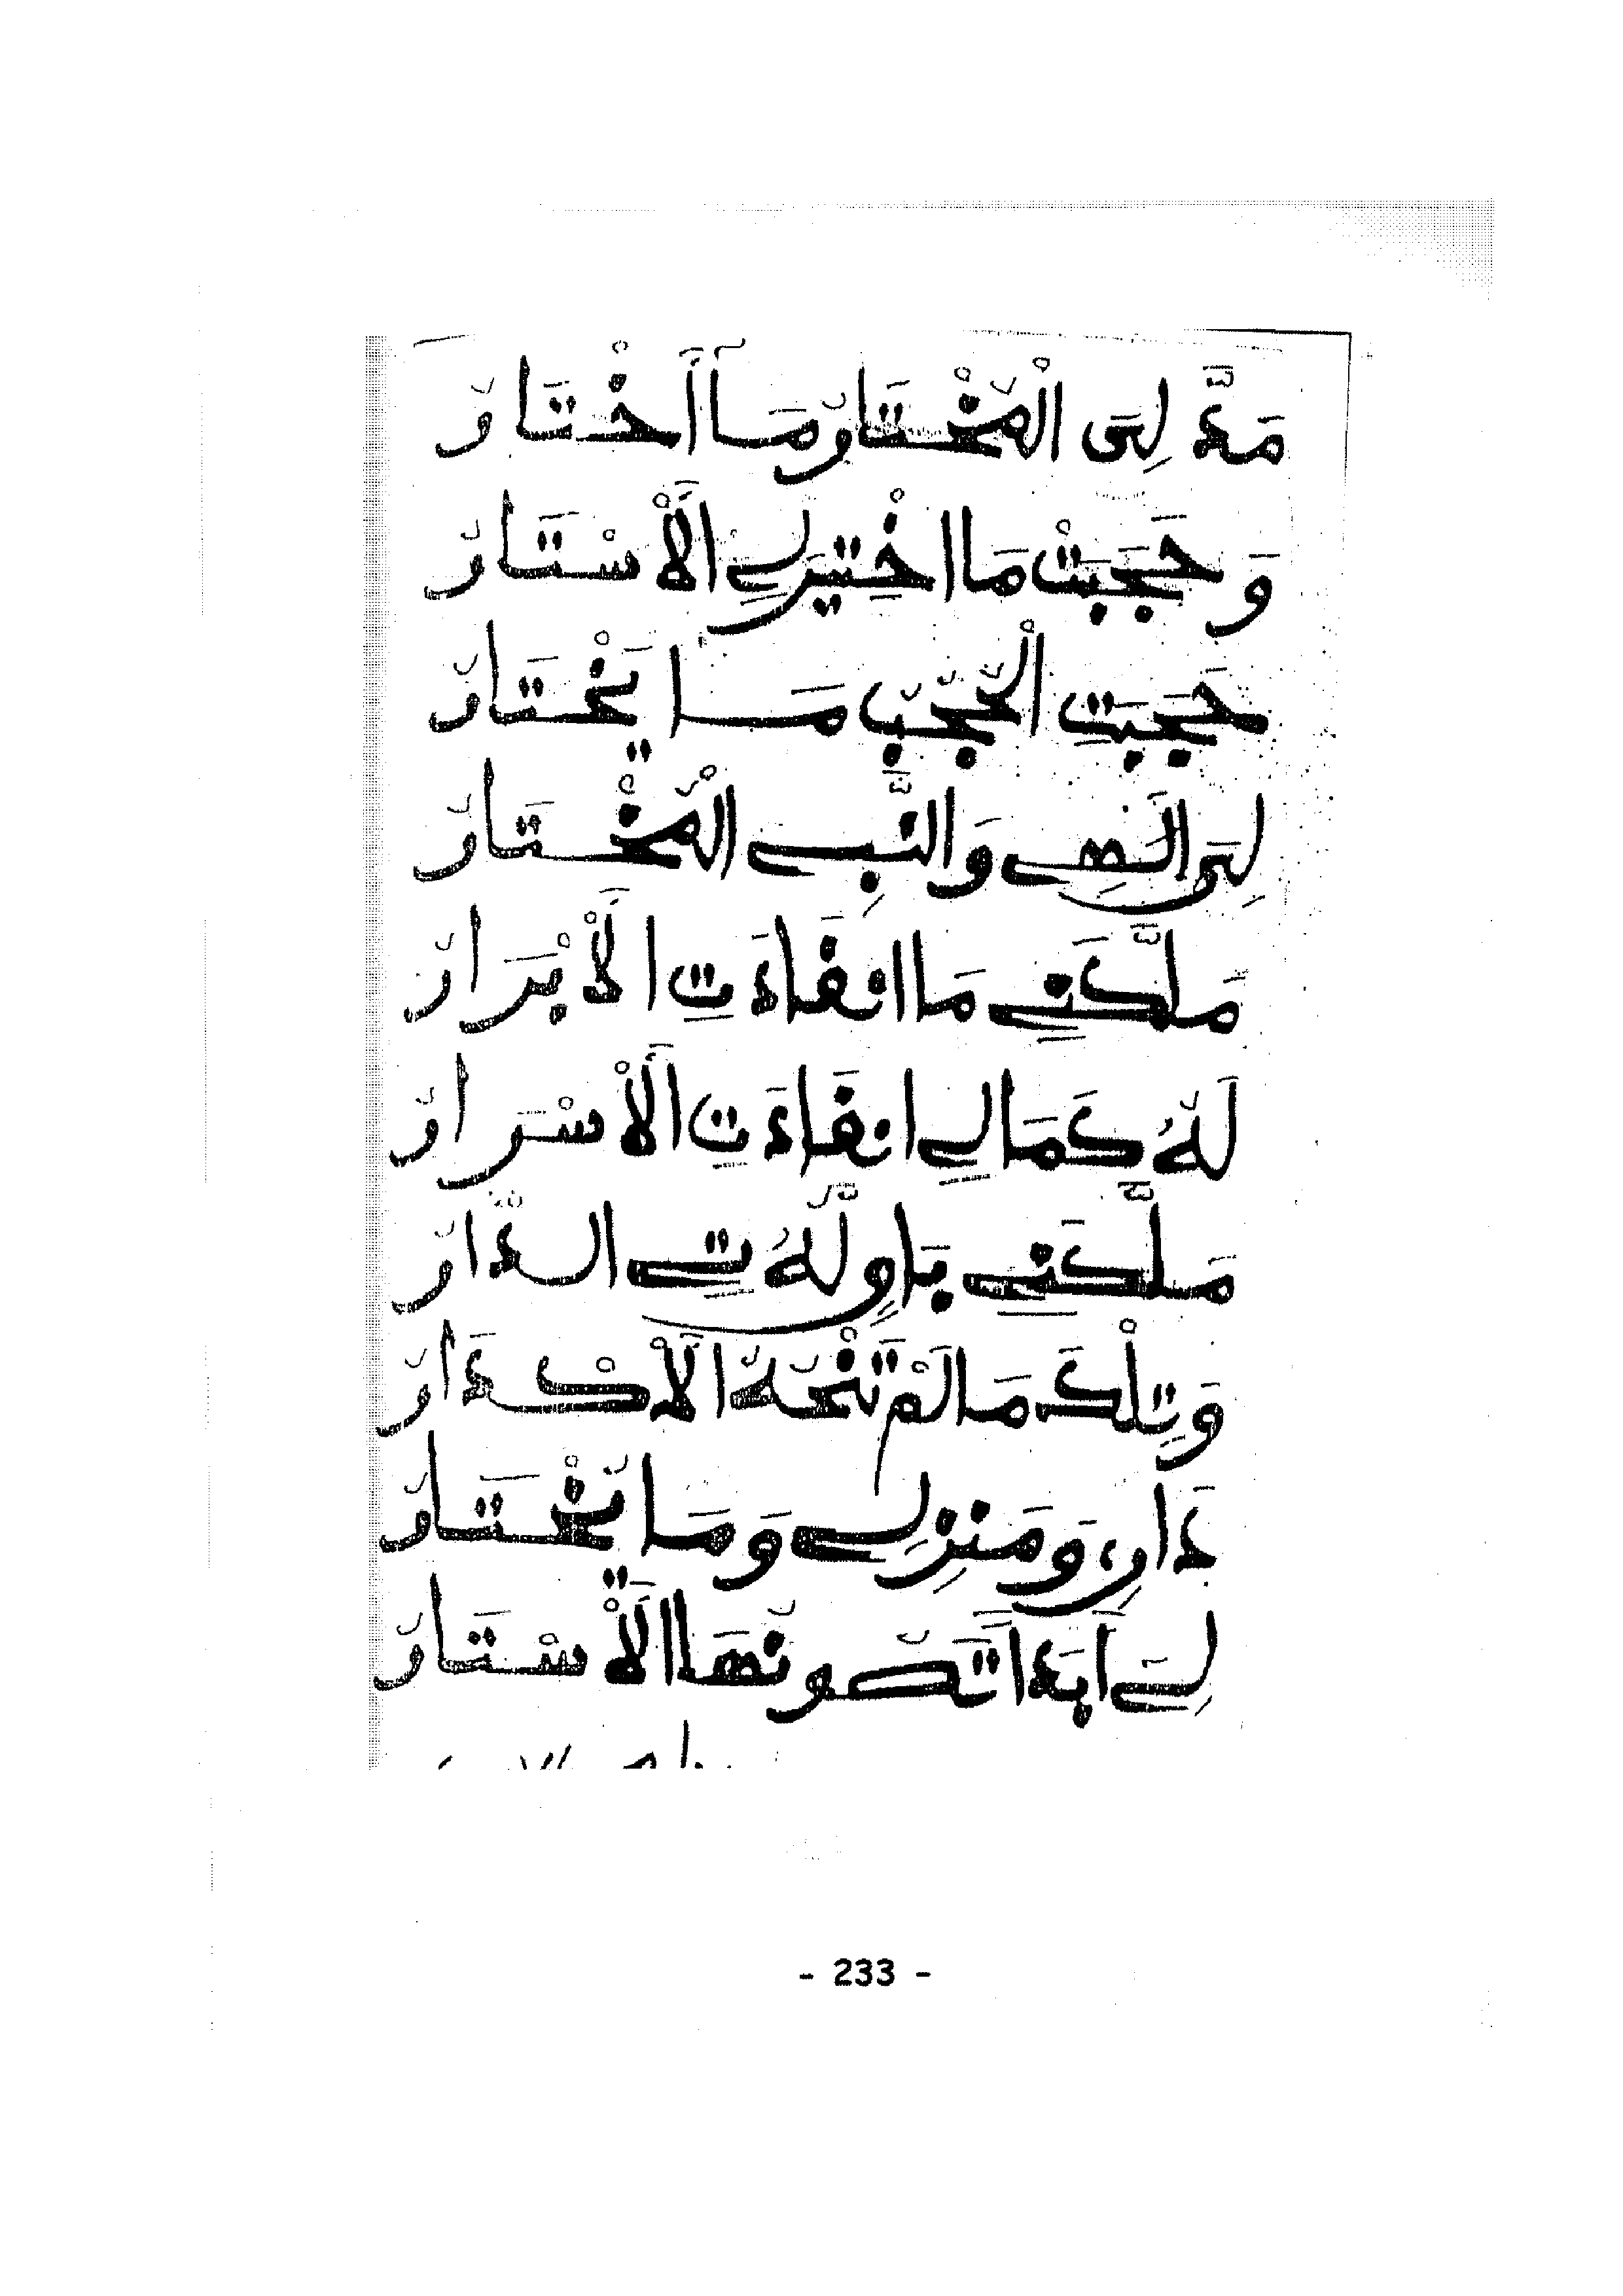 مَدَّ لِىَ الْمُخْتَارُ مَا أَخْتَارُ
وَحَجَبَتْ مَا اخْتِيرَ لِى الْأَسْتَارُ
حَجَبَتِ الْحُجُبُ مَا يُخْتَارُ
لِىَ الرَّضِى وَالنَّبِى الْمُخْتَارُ
مَلَّكَنِى مَا انْفَادَتِ الْأَبْرَارُ
لَهُ كَمَا لِى انْفَادَتِ الْأَسْرَارُ
مَلَّكَنِى بَارٍ لَّهُ تِى الدَّارُ
وَتِلْكَ مَا لَمْ تَنْحُهُ الْأَكْدَارُ
دَارِى وَمَنزِلِى وَمَا يُخْتَارُ
لِىَ أَبَدًا تَكُونُهَا الْأَسْتَارُ
- 233 -